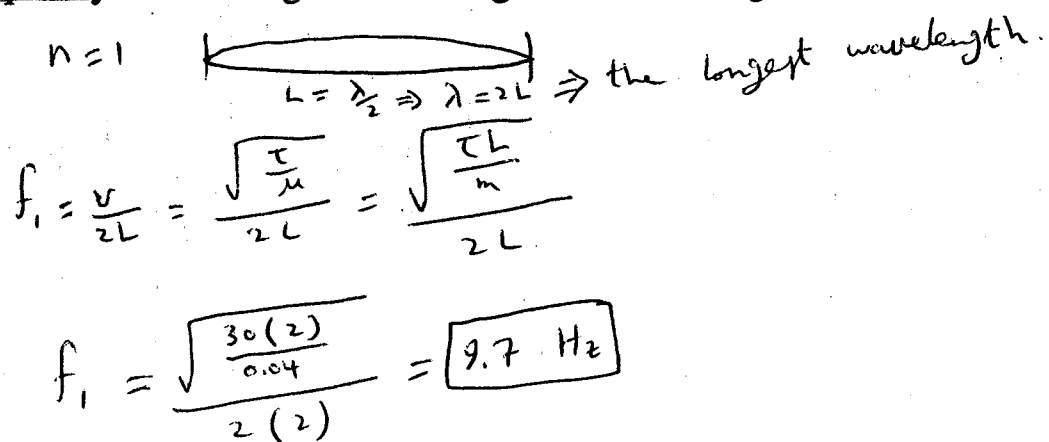 n = 1
L = λ/2 ⇒ λ = 2L ⇒ the longest wavelength.
f₁ = v/2L = √(τ/μ)/2L = √(τL/m)/2L.
f₁ = √(30(2)/0.04)/2(2) = 9.7 Hz